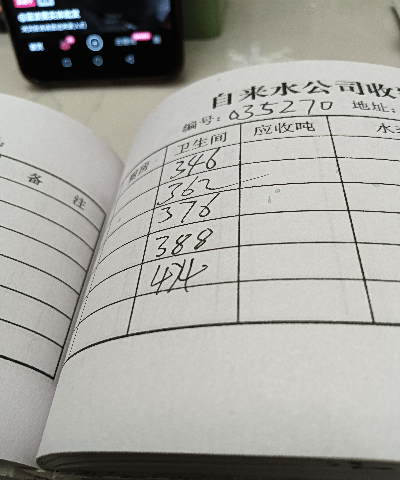 自来水公司收
编号: 035270 地址:
厨房 卫生间 应收吨 水
346
362
376
388
备注